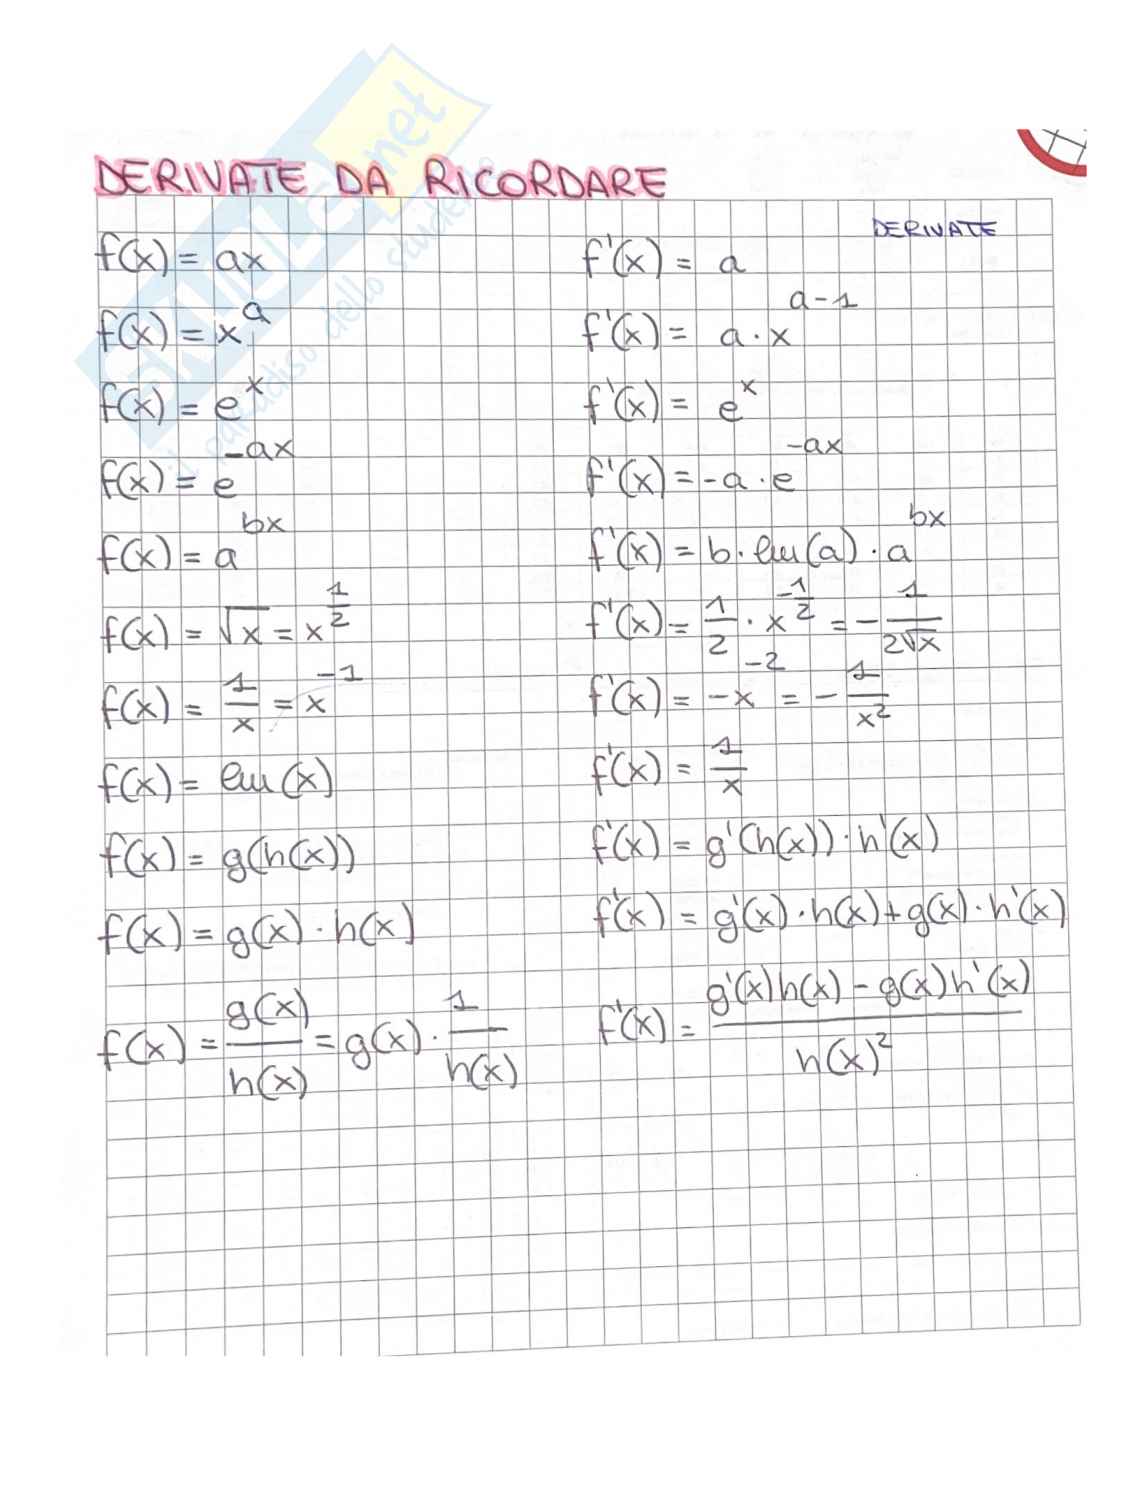 DERIVATE DA RICORDARE
DERIVATE
f(x) = ax    f'(x) = a
f(x) = x^a    f'(x) = a · x^(a-1)
f(x) = e^x    f'(x) = e^x
f(x) = e^(-ax)    f'(x) = -a · e^(-ax)
f(x) = a^(bx)    f'(x) = b · ln(a) · a^(bx)
f(x) = √x = x^(1/2)    f'(x) = 1/2 · x^(-1/2) = - 1/(2√x)
f(x) = 1/x = x^(-1)    f'(x) = -x^(-2) = - 1/x²
f(x) = ln(x)    f'(x) = 1/x
f(x) = g(h(x))    f'(x) = g'(h(x)) · h'(x)
f(x) = g(x) · h(x)    f'(x) = g'(x) · h(x) + g(x) · h'(x)
f(x) = g(x)/h(x) = g(x) · 1/h(x)    f'(x) = (g'(x)h(x) - g(x)h'(x))/h(x)²
SKUOLA.net
il paradiso dello studente